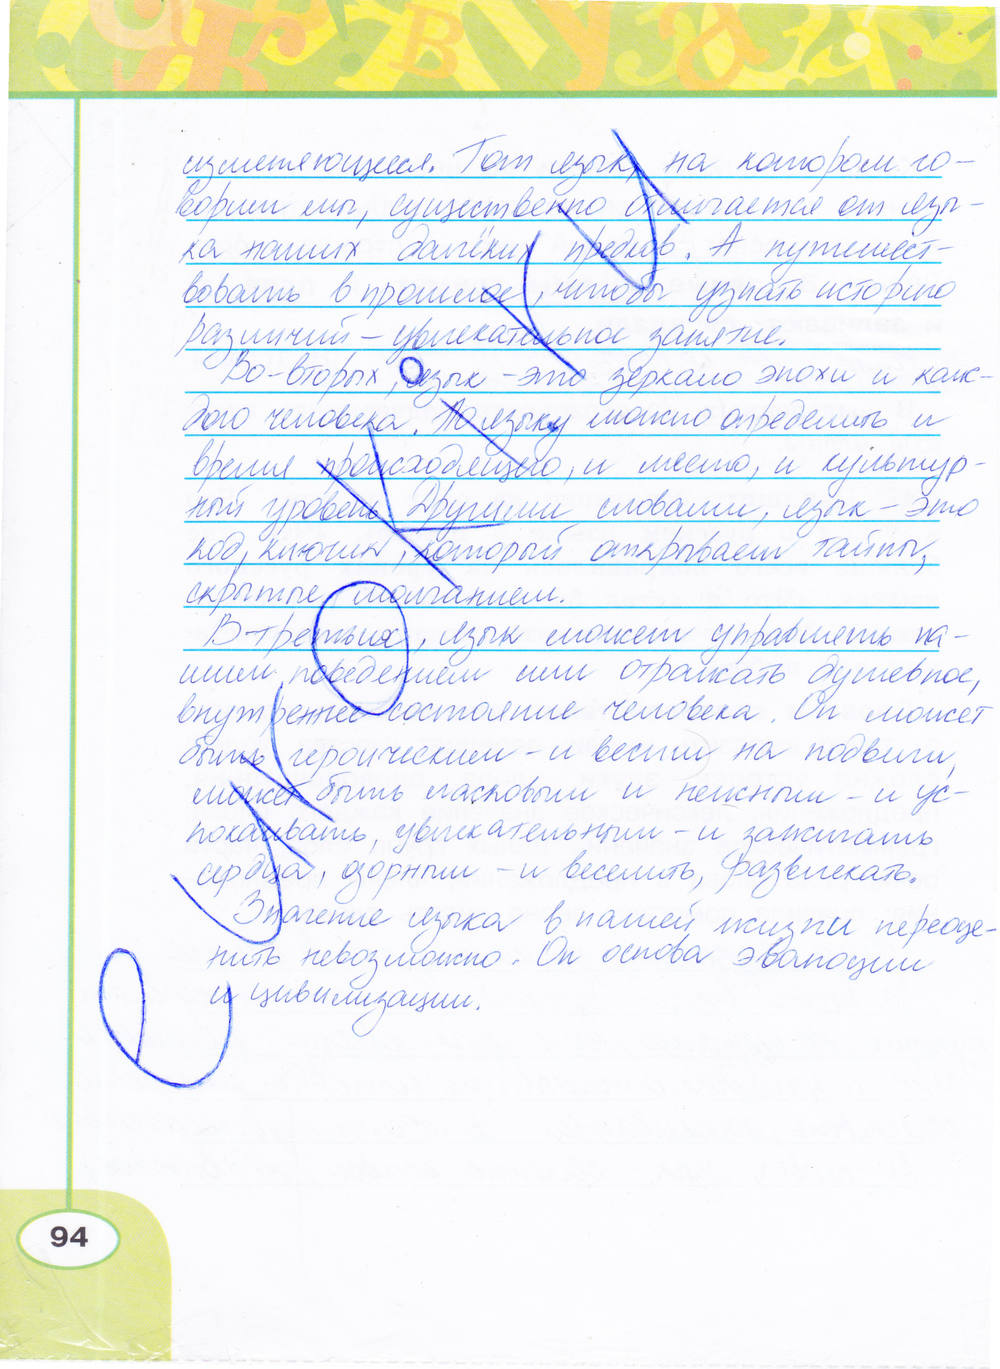 изменяющееся. Тот язык, на котором го-
ворим мы, существенно отличается от язы-
ка наших далёких предков. А путешест-
вовать в прошлое, чтобы узнать историю
различий - увлекательное занятие.
Во-вторых, язык - это зеркало эпохи и каж-
дого человека. По языку можно определить и
время происходящего, и место, и культур-
ный уровень. Другими словами, язык - это
код, ключик, который открывает тайны,
скрытые молчанием.
В-третьих, язык может управлять на-
шим поведением или отражать душевное,
внутреннее состояние человека. Он может
быть героическим - и вести на подвиги,
может быть ласковым и нежным - и ус-
покаивать, увлекательным - и зажигать
сердца, озорным - и веселить, развлекать.
Значение языка в нашей жизни переоце-
нить невозможно. Он основа эволюции
и цивилизации.
94